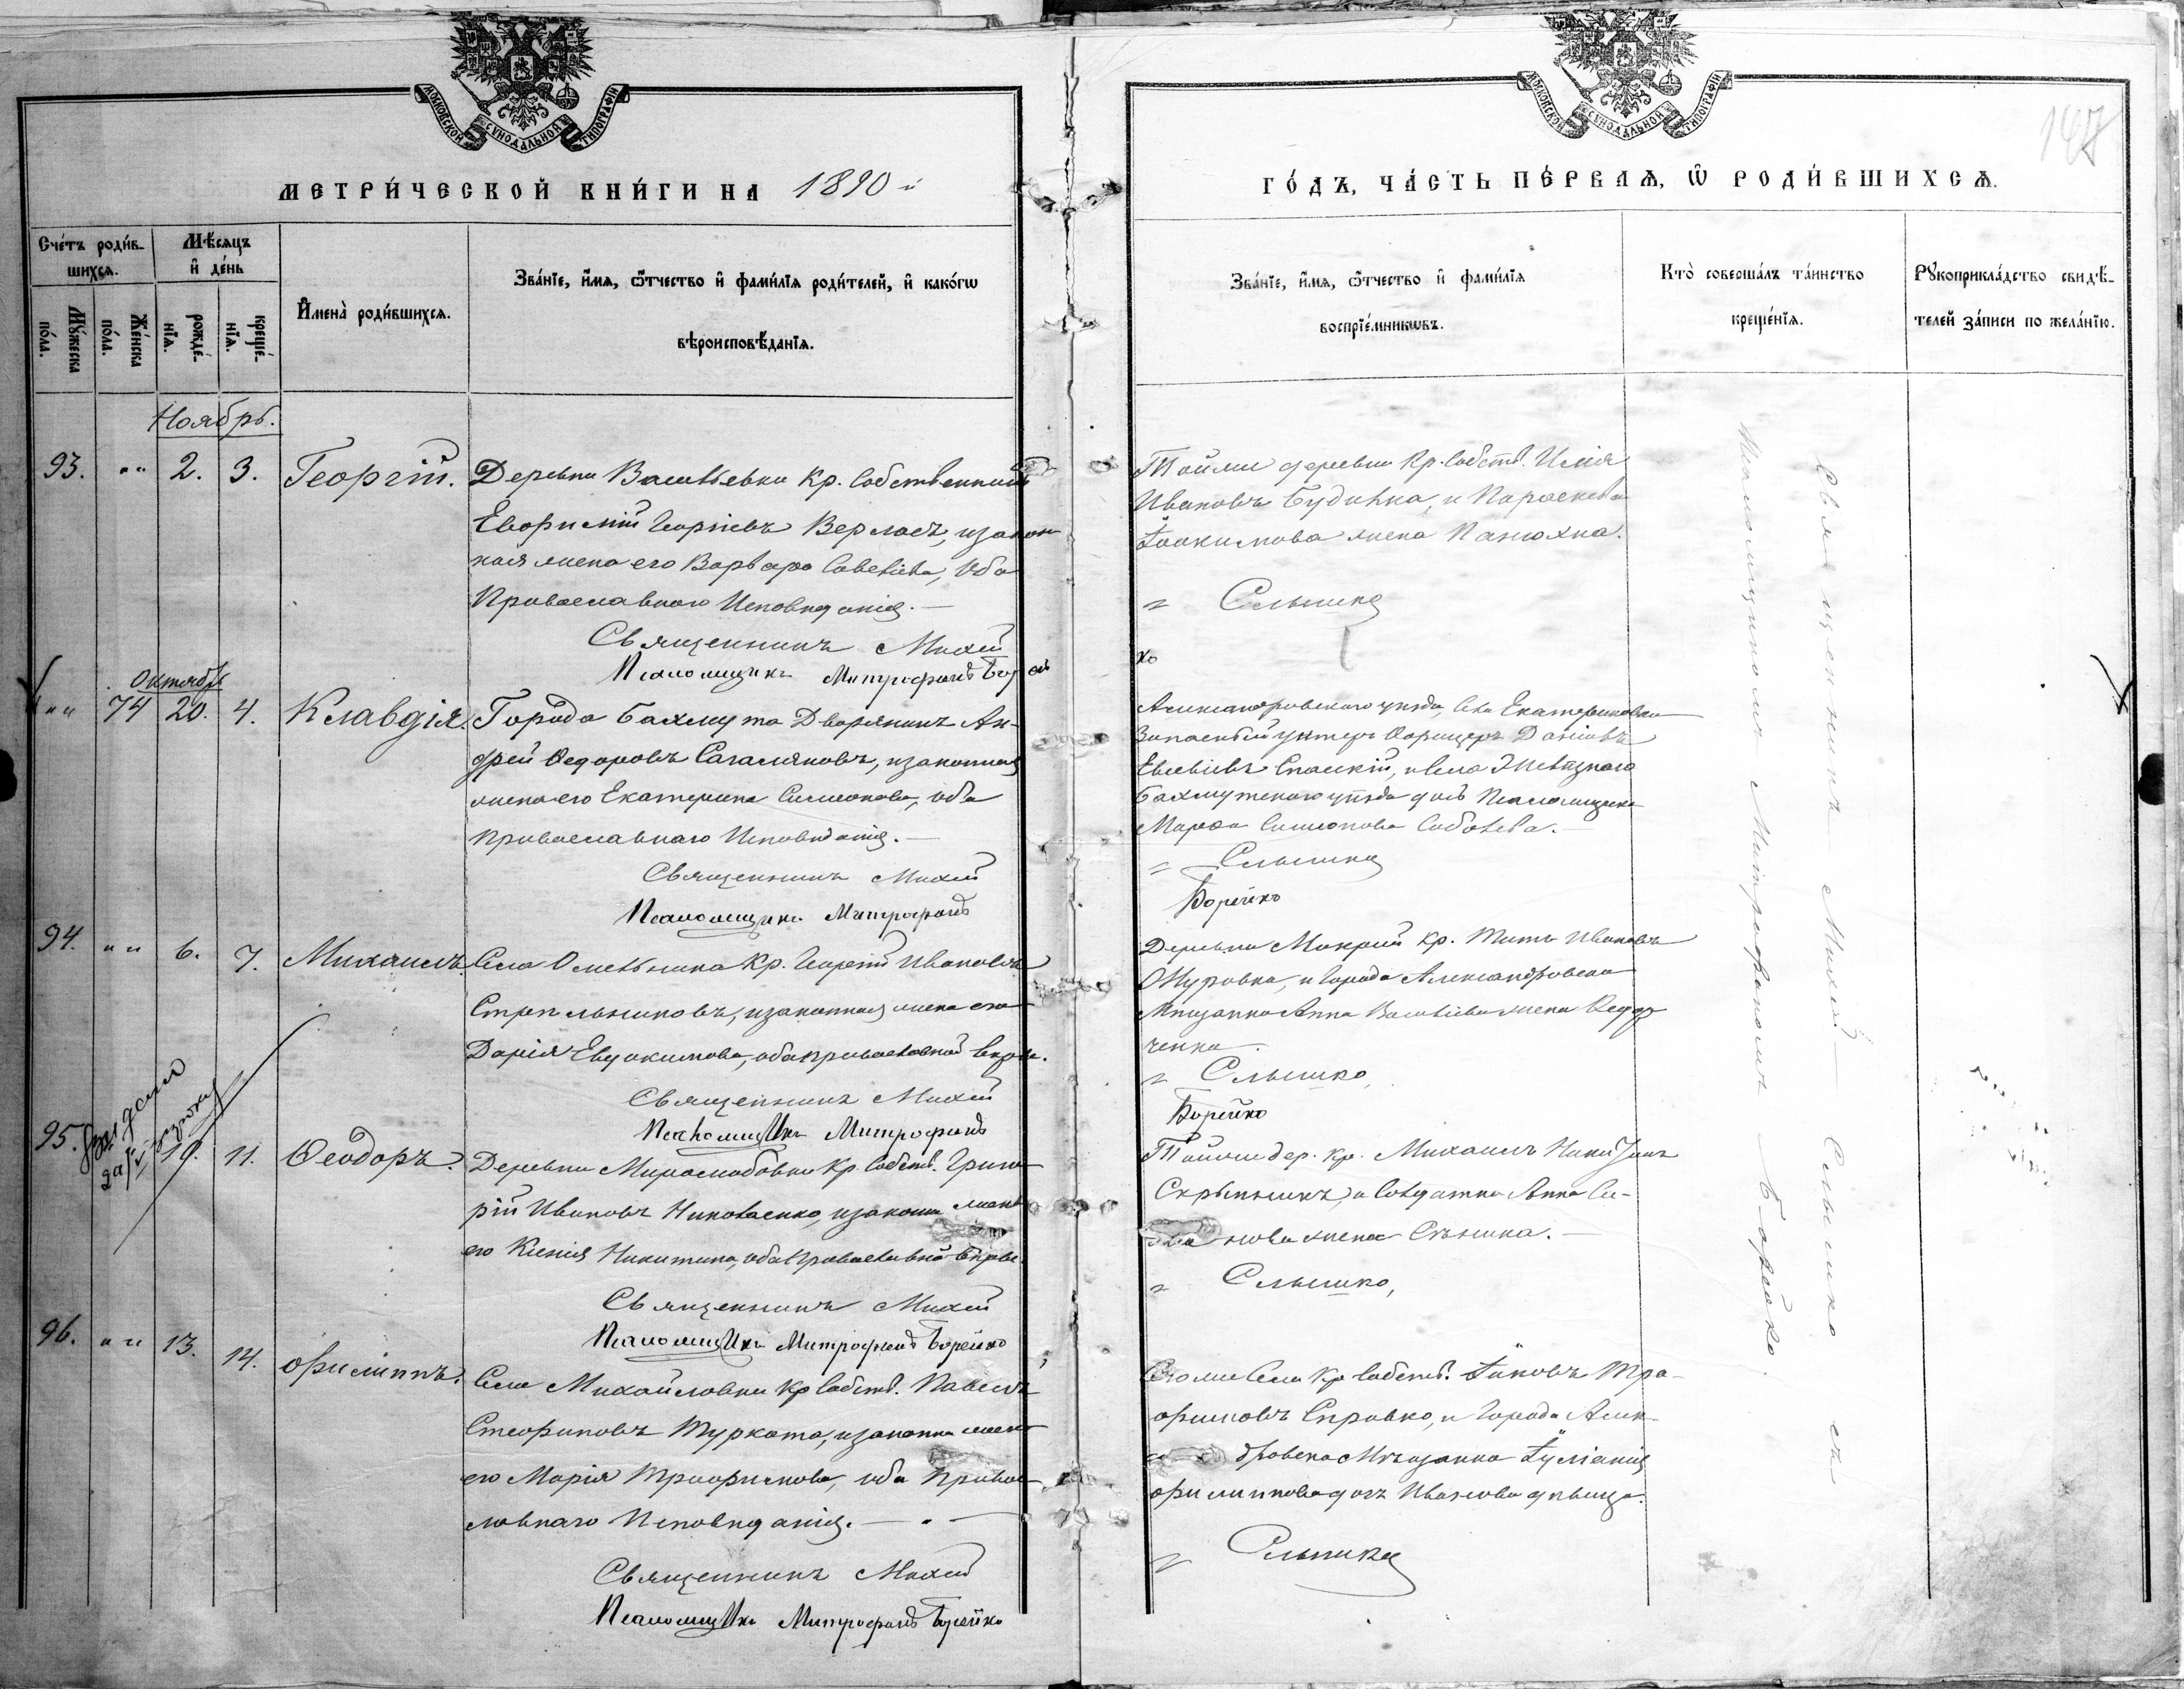 МОСКОВСКОЙ СѴНОДАЛЬНОЙ ТИПОГРАФІИ
МЕТРИ́ЧЕСКОЙ КНИ́ГИ НА 1890 й
Сче́тъ роди́в-
шихсѧ.
Мѣ́сѧцъ
и҆ де́нь
Мꙋ́жеска
по́ла.
Же́нска
по́ла.
рожде́-
нїѧ.
креще́-
нїѧ.
И҆мена̀ роди́вшихсѧ.
Зва́нїе, и҆́мѧ, ѻ҆́тчество и҆ фами́лїѧ роди́телей, и҆ како́гѡ
вѣроисповѣ́данїѧ.
Ноябрь.
93. "" 2. 3. Георгій. Деревни Васильевки Кр. Собственникъ
Евфимій Георгіевъ Верлосъ, изакон
ная жена его Варвара Савеліева, Оба
Православнаго Исповѣданія. —
Священникъ Михей
Псаломщикъ Митрофанъ Борей
Октябрь
"" 74 20. 4. Клавдія. Города Бахмута Дворянинъ Ан-
дрей Ѳедоровъ, изаконная
жена его Екатерина Симеонова, оба
Православнаго Исповѣданія. —
Священникъ Михей
Псаломщикъ Митрофанъ
94. "" 6. 7. Михаилъ. Села Омельника Кр. Георгій Ивановъ
Стрельниковъ, изаконная жена его
Дарія Евдокимова, оба православной вѣры.
Священникъ Михей
Псаломщикъ Митрофанъ
95. 10. 11. Ѳеодоръ. Деревни Миролюбовки Кр. Собств. Григо
рій Ивановъ Николаенко, изаконн жена
его Ксенія Никитина, оба Православной вѣры.
Священникъ Михей
Псаломщикъ Митрофанъ Борейко
96. "" 13. 14. Филиппъ. Села Михайловки Кр Собств. Павелъ
Стефановъ Турката, изаконна жена
его Марія Трофимова, оба Право
славнаго Исповѣданія. —
Священникъ Михей
Псаломщикъ Митрофанъ Борейко
МОСКОВСКОЙ СѴНОДАЛЬНОЙ ТИПОГРАФІИ
147
ГО́ДЪ, ЧА́СТЬ ПЕ́РВАѦ, Ѡ҆ РОДИ́ВШИХСѦ.
Зва́нїе, и҆́мѧ, ѻ҆́тчество и҆ фами́лїѧ
воспрїе́мникѡвъ.
Кто̀ соверша́лъ та́инство
креще́нїѧ.
Рꙋкоприкла́дство свидѣ́-
телей за́писи по жела́нїю.
Тойже деревни Кр. Собств. Илія
Ивановъ Будинка, и Параскева
Іоакимова жена Панюхна.
Слышко
ко
Александровскаго уѣзда, Села Екатериновки
Запасный унтеръ Офицеръ Даніилъ
Евсевіевъ Спаскій, и села
Бахмутскаго уѣзда дочь Псаломщика
Марѳа Симеонова Соболева. —
Слышко
Борейко
Деревни Мокрой Кр. Титъ Ивановъ
и Города Александровска
Мѣщанка Анна Васильева жена Ѳедор
ченка.
Слышко,
Борейко
Тойже дер. Кр. Михаилъ Никитинъ
Скрыпникъ, и Солдатка Анна Си-
нова жена. —
Слышко,
Тогоже Села Кр Собств. Іаковъ Тро-
фимовъ Спровко, и Города Алек-
дровска Мѣщанка Іуліанія
Филиппова дочь Иванова дѣвица.
Слышко
Священникъ Михей Слышко съ
Псаломщикомъ Митрофаномъ Борейко.